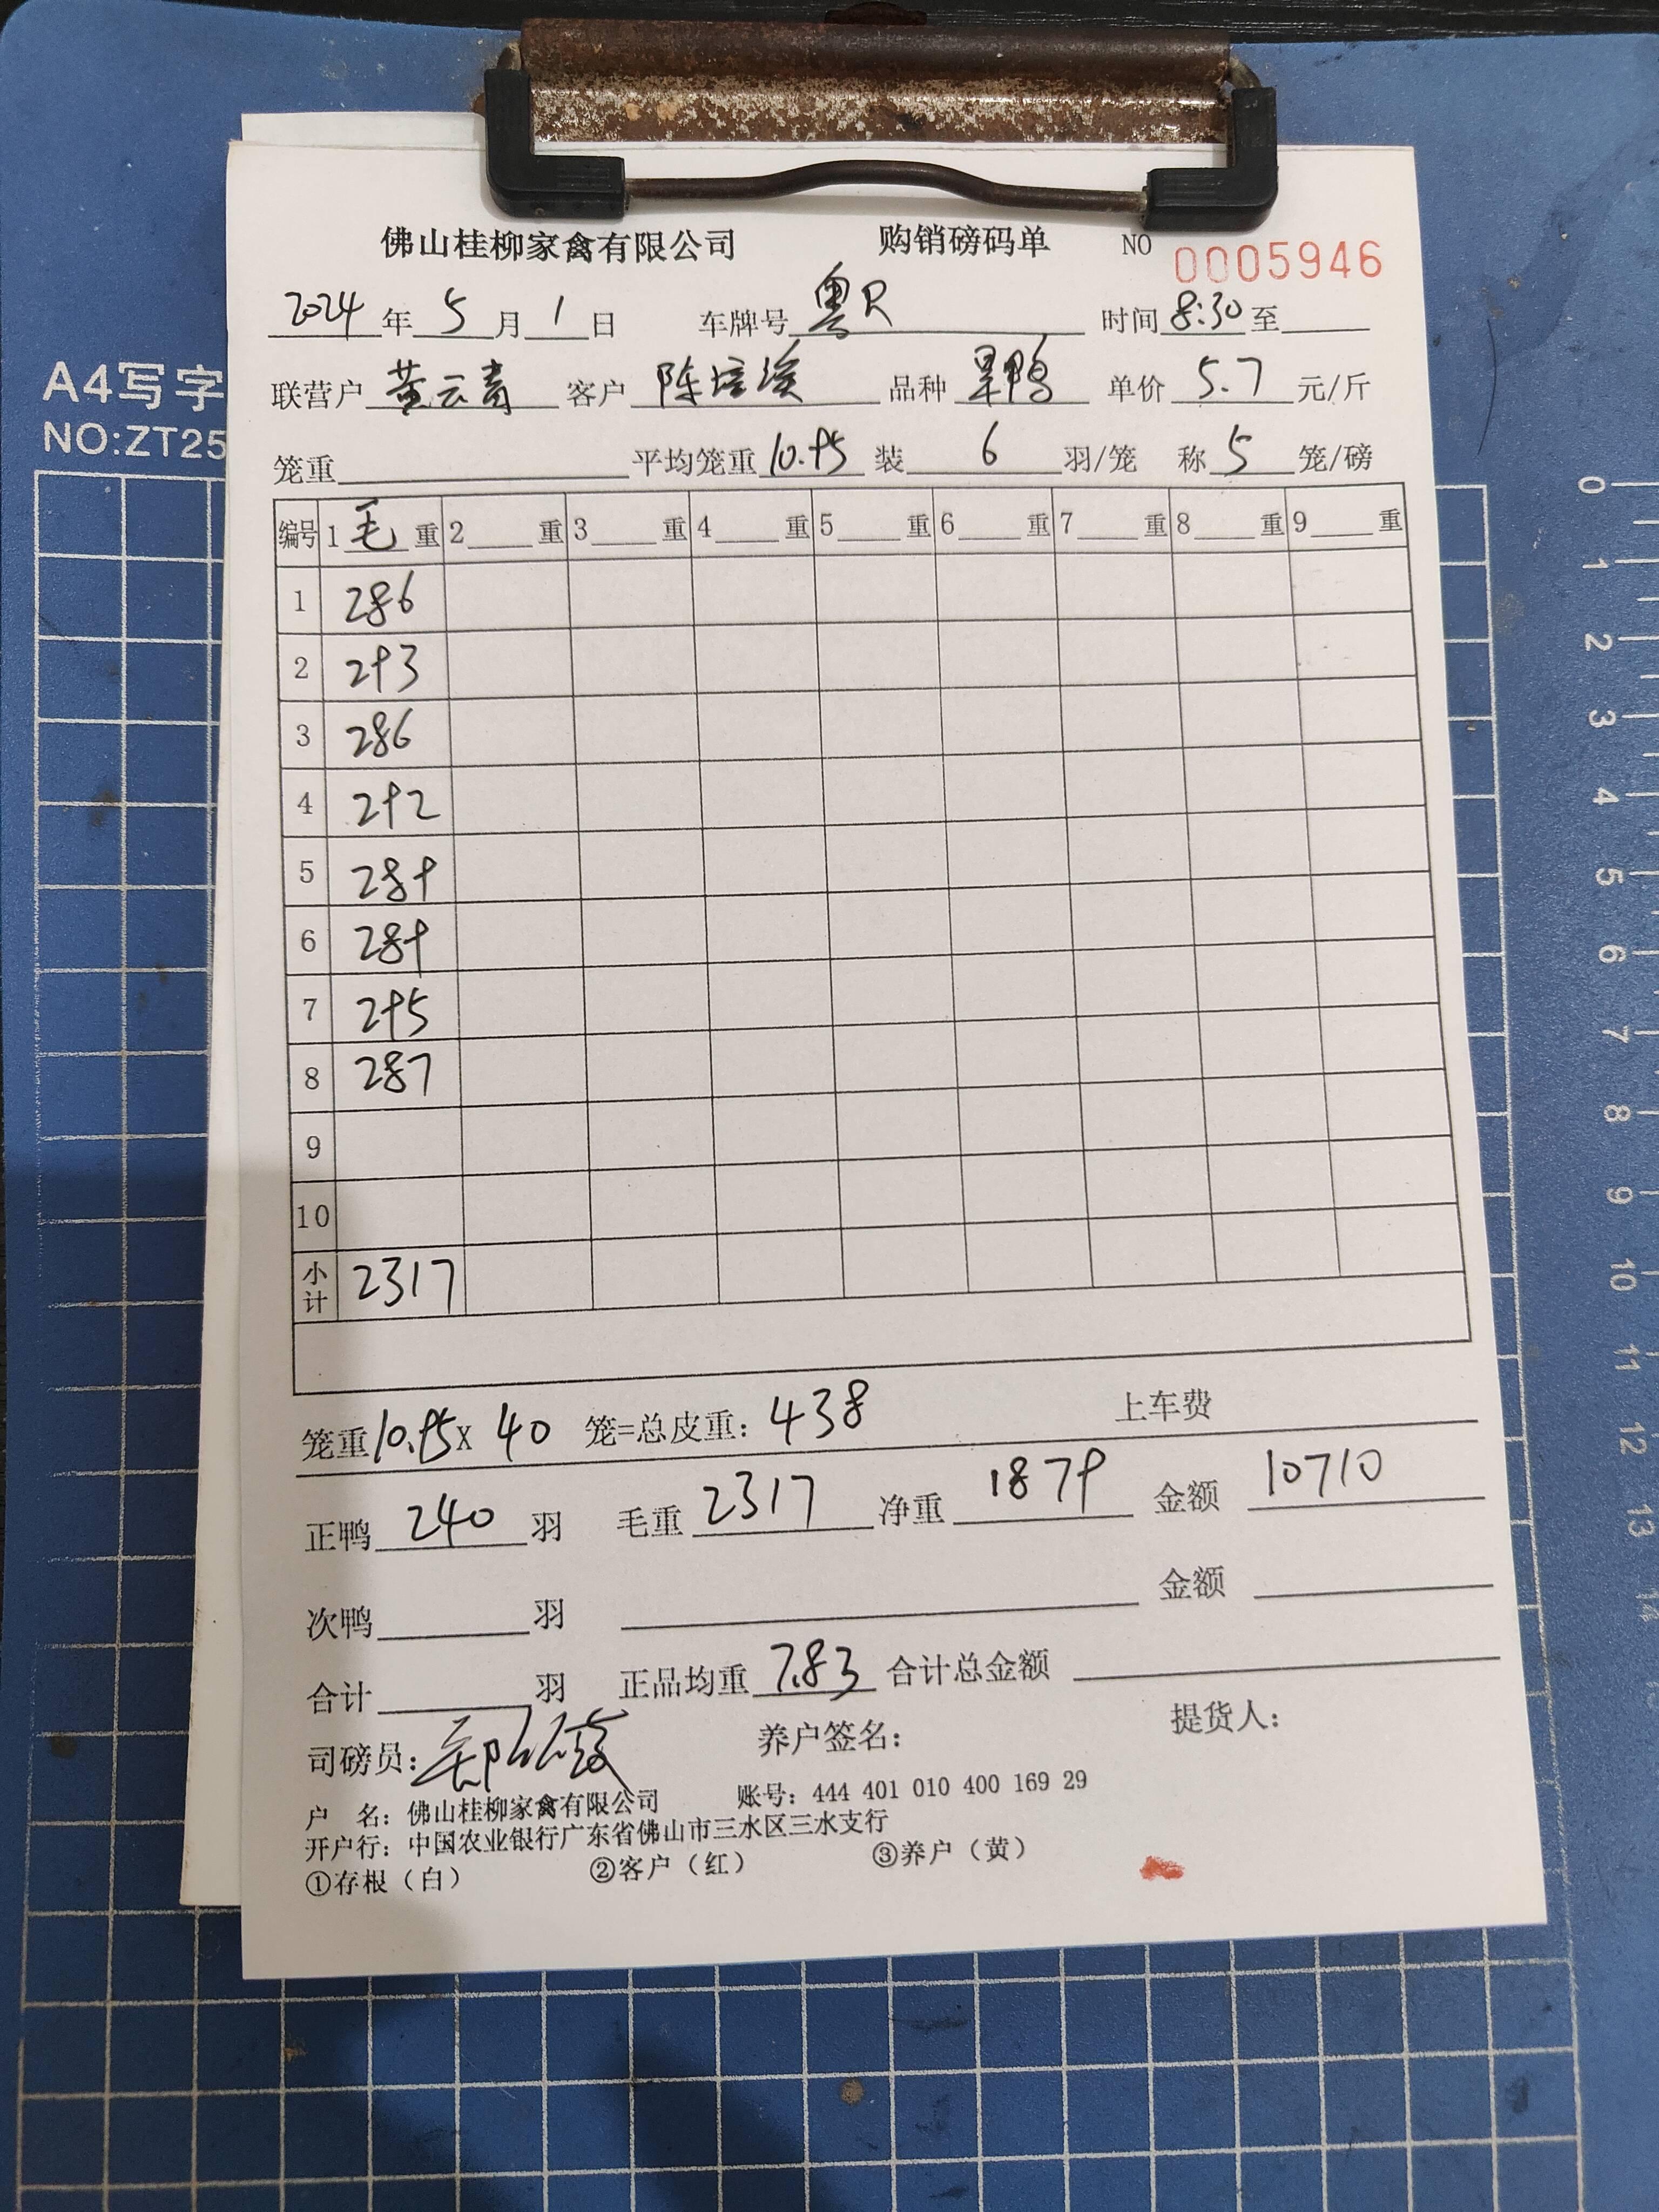 佛山桂柳家禽有限公司 购销磅码单 NO 0005946
2024年5月1日 车牌号 粤R 时间 8:30 至
联营户 黄云青 客户 陈培 品种 旱鸭 单价 5.7 元/斤
笼重 平均笼重 10.95 装 6 羽/笼 称 5 笼/磅
编号 1 毛 重 2 重 3 重 4 重 5 重 6 重 7 重 8 重 9 重
1 286
2 293
3 286
4 292
5 289
6 289
7 295
8 287
9
10
小计 2317
笼重 10.95 X 40 笼=总皮重: 438 上车费
正鸭 240 羽 毛重 2317 净重 1879 金额 10710
次鸭 羽 金额
合计 羽 正品均重 7.83 合计总金额
司磅员: 养户签名: 提货人:
户 名: 佛山桂柳家禽有限公司 账号: 444 401 010 400 169 29
开户行: 中国农业银行广东省佛山市三水区三水支行
①存根（白） ②客户（红） ③养户（黄）
A4写字
NO:ZT25
0
1
2
3
4
5
6
7
8
9
10
11
12
13
14